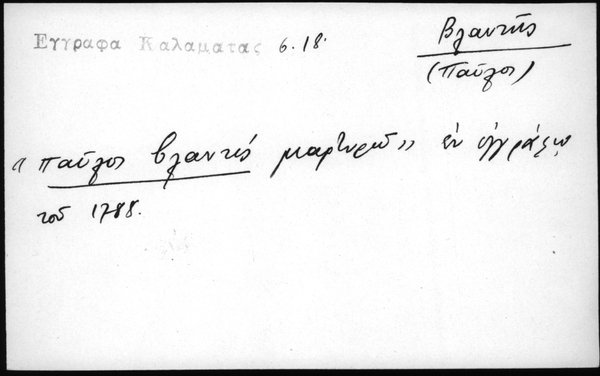 Έγγραφα Καλαματας 6.18.
Βλαντής
(Παῦλος)
«παῦλος βλαντίς μαρτυρῶ» ἐν ἐγγράφῳ
τοῦ 1788.